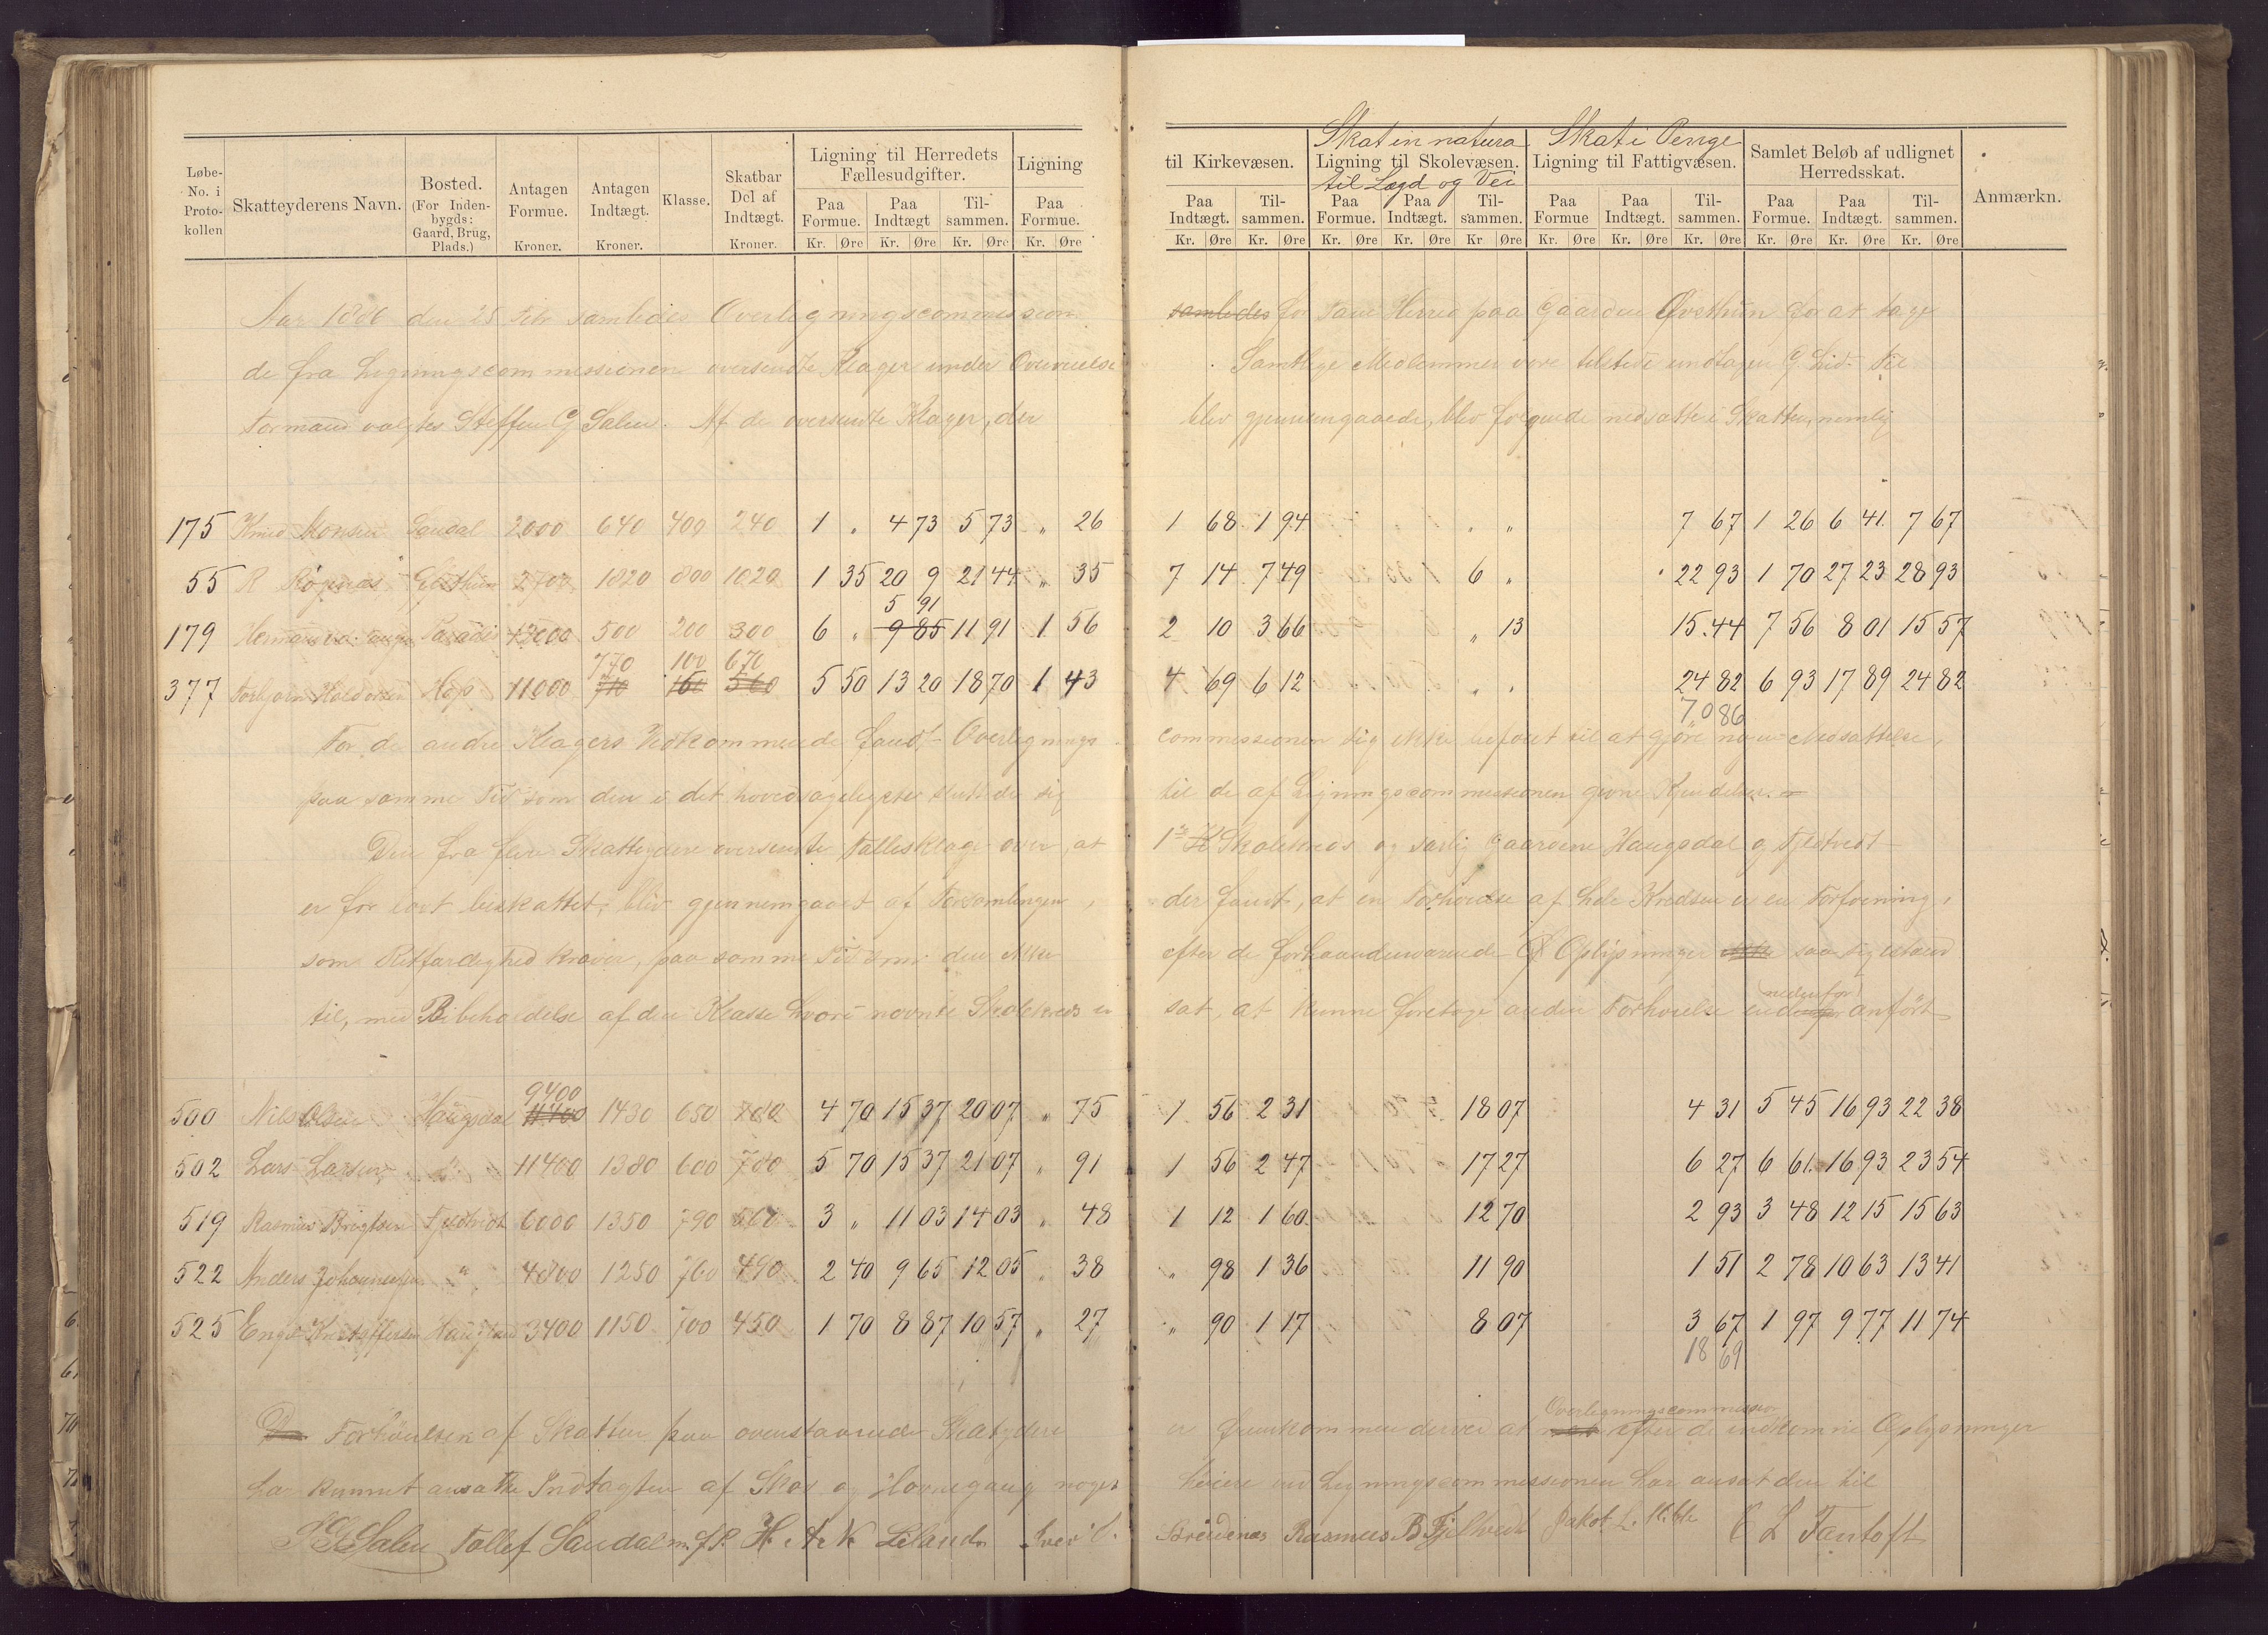 Skat in natura Skat i Penge
Løbe- No. i Proto- kollen | Skatteyderens Navn. | Bosted. (For Inden- bygds: Gaard, Brug, Plads.) | Antagen Formue. Kroner. | Antagen Indtægt. Kroner. | Klasse. | Skatbar Del af Indtægt. Kroner. | Ligning til Herredets Fællesudgifter. | Ligning | til Kirkevæsen. | Ligning til Skolevæsen. til Lægd og Vei | Ligning til Fattigvæsen. | Samlet Beløb af udlignet Herredsskat. | Anmærkn.
Paa Formue. | Paa Indtægt | Til- sammen. | Paa Formue. | Paa Indtægt. | Til- sammen. | Paa Formue. | Paa Indtægt. | Til- sammen. | Paa Formue | Paa Indtægt. | Til- sammen. | Paa Formue. | Paa Indtægt. | Til- sammen.
Kr. Øre Kr. Øre Kr. Øre Kr. Øre Kr. Øre Kr. Øre Kr. Øre Kr. Øre Kr Øre Kr. Øre Kr. Øre Kr. Øre Kr. Øre Kr. Øre Kr. Øre
Aar 1886 den 25 Febr samledes Overligningscommission samledes for Fane Herred paa Gaarden Øvsthun for at tage
de fra Ligningscommissionen oversendte Klager under Overveielse. Samtlige Medlemmer vare tilstede undtagen G. Lid. Til
Formand valgtes Steffen G Salen. Af de oversendte Klager, der blev gjennemgaaede, blev følgende nedsatte i Skatten, nemlig
175 Knud Monsen Sandal 2000 640 400 240 1 " 4 73 5 73 " 26 1 68 1 94 " " 7 67 1 26 6 41 7 67
55 R Røgenæs 2700 1820 800 1020 1 35 20 9 21 44 " 35 7 14 7 49 6 " 22 93 1 70 27 23 28 93
5 91
179 Herman Paradis 12000 500 200 300 6 " 9 85 11 91 1 56 2 10 3 66 " 13 15.44 7 56 8 01 15 57
770 100 670
377 Torbjørn Haldorsen Hop 11000 710 150 560 5 50 13 20 18 70 1 43 4 69 6 12 " " 24 82 6 93 17 89 24 82
70 86
For de andre Klagers Vedkommende fandt Overlignings commissionen sig ikke beføiet til at gjøre nogen Nedsættelse,
paa samme Tid som den i det hovedsageligste sluttede sig til de af Ligningscommissionen givne Kjendelser.
Den fra flere Skatteydere oversendte Fællesklage over, at 1ste Skolekreds og særlig Gaardene Haugsdal og Fjeldtvedt
er for lavt beskattet, blev gjennemgaaet af Forsamlingen, der fandt, at en Forhøielse af hele Kredsen er en Forføining,
som Retfærdighed kræver, paa samme Tid som den efter de forhaandenværende Oplysninger ikke saa sig istand
nedenfor
til, med Bibeholdelse af den Klasse hvori nævnte Skolekreds er sat, at kunne foretage anden Forhøielse end anført
9400
500 Nils Olsen Haugsdal 11400 1430 650 780 4 70 15 37 20 07 " 75 1 56 2 31 18 07 4 31 5 45 16 93 22 38
502 Lars Larsen " 11400 1380 600 780 5 70 15 37 21 07 " 91 1 56 2 47 17 27 6 27 6 61 16 93 23 54
519 Rasmus Brigtsen Fjeldtvedt 6000 1350 790 560 3 " 11 03 14 03 " 48 1 12 1 60 12 70 2 93 3 48 12 15 15 63
522 Anders Johannessen " 4800 1250 760 490 2 40 9 65 12 05 " 38 " 98 1 36 11 90 1 51 2 78 10 63 13 41
525 Engel Kristoffersen 3400 1150 700 450 1 70 8 87 10 57 " 27 " 90 1 17 8 07 3 67 1 97 9 77 11 74
18 69
Overligningscommission
Forhøielsen af Skatten paa ovenstaaende Skatydere er fremkommen derved at efter de indkomne Oplysninger
har kunnet ansætte Indtægten af Skov og Havnegang noget høiere end Ligningscommissionen har ansat den til
S G Salen Tollef Sandal m. f. P. H. A. K Leland Rasmus B Fjeltvedt Jakob L. O L Fantoft